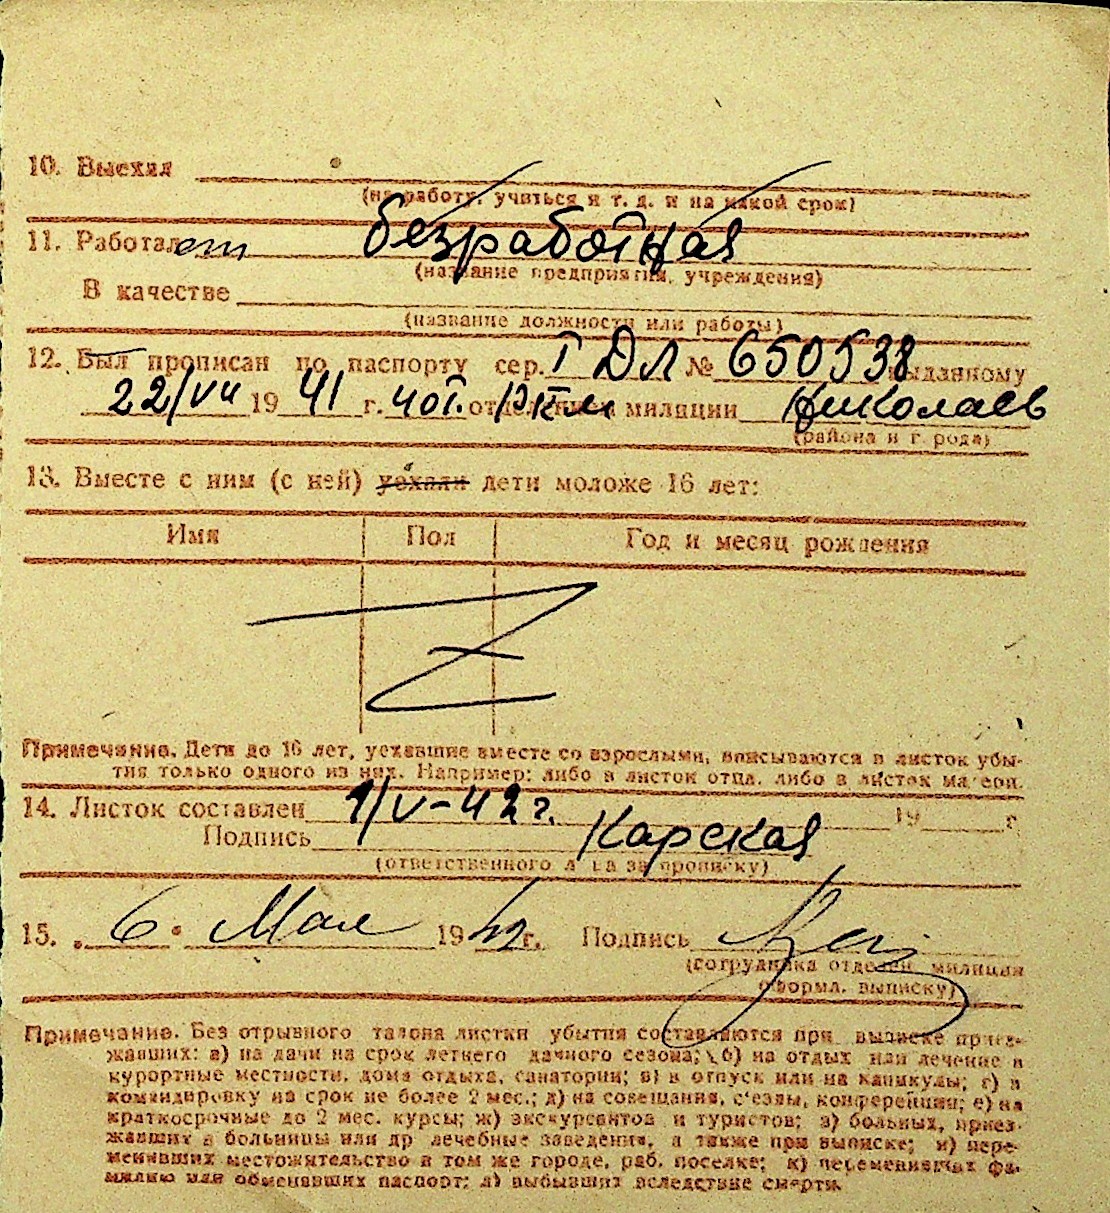 10. Выехал
(на работу, учиться и т. д. и на какой срок)
11. Работает безработная
(название предприятия, учреждения)
В качестве
(название должности или работы)
12. Был прописан по паспорту сер. I ДЛ № 650538 выданному
22/VII 1941 г. 40 г. отделением РКМ милиции Николаев
(района и города)
13. Вместе с ним (с ней) уехали дети моложе 16 лет:
Имя Пол Год и месяц рождения
Z
Примечание. Дети до 16 лет, уехавшие вместе со взрослыми, вписываются в листок убы-
тия только одного из них. Например: либо в листок отца, либо в листок матери.
14. Листок составлен 1/V-42 г. 19 г.
Подпись Карская
(ответственного лица за прописку)
15. 6. Мая 1942 г. Подпись
(сотрудника отделен. милиции
оформл. выписку)
Примечание. Без отрывного талона листки убытия составляются при выписке приез-
жавших: а) на дачи на срок летнего дачного сезона; б) на отдых или лечение в
курортные местности, дома отдыха, санатории; в) в отпуск или на каникулы; г) в
командировку на срок не более 2 мес.; д) на совещания, с'езды, конференции; е) на
краткосрочные до 2 мес. курсы; ж) экскурсантов и туристов; з) больных, приез-
жавших в больницы или др лечебные заведения, а также при выписке; и) пере-
менивших местожительство в том же городе, раб. поселке; к) переменивших фа-
милию или обменявших паспорт; л) выбывших вследствие смерти.